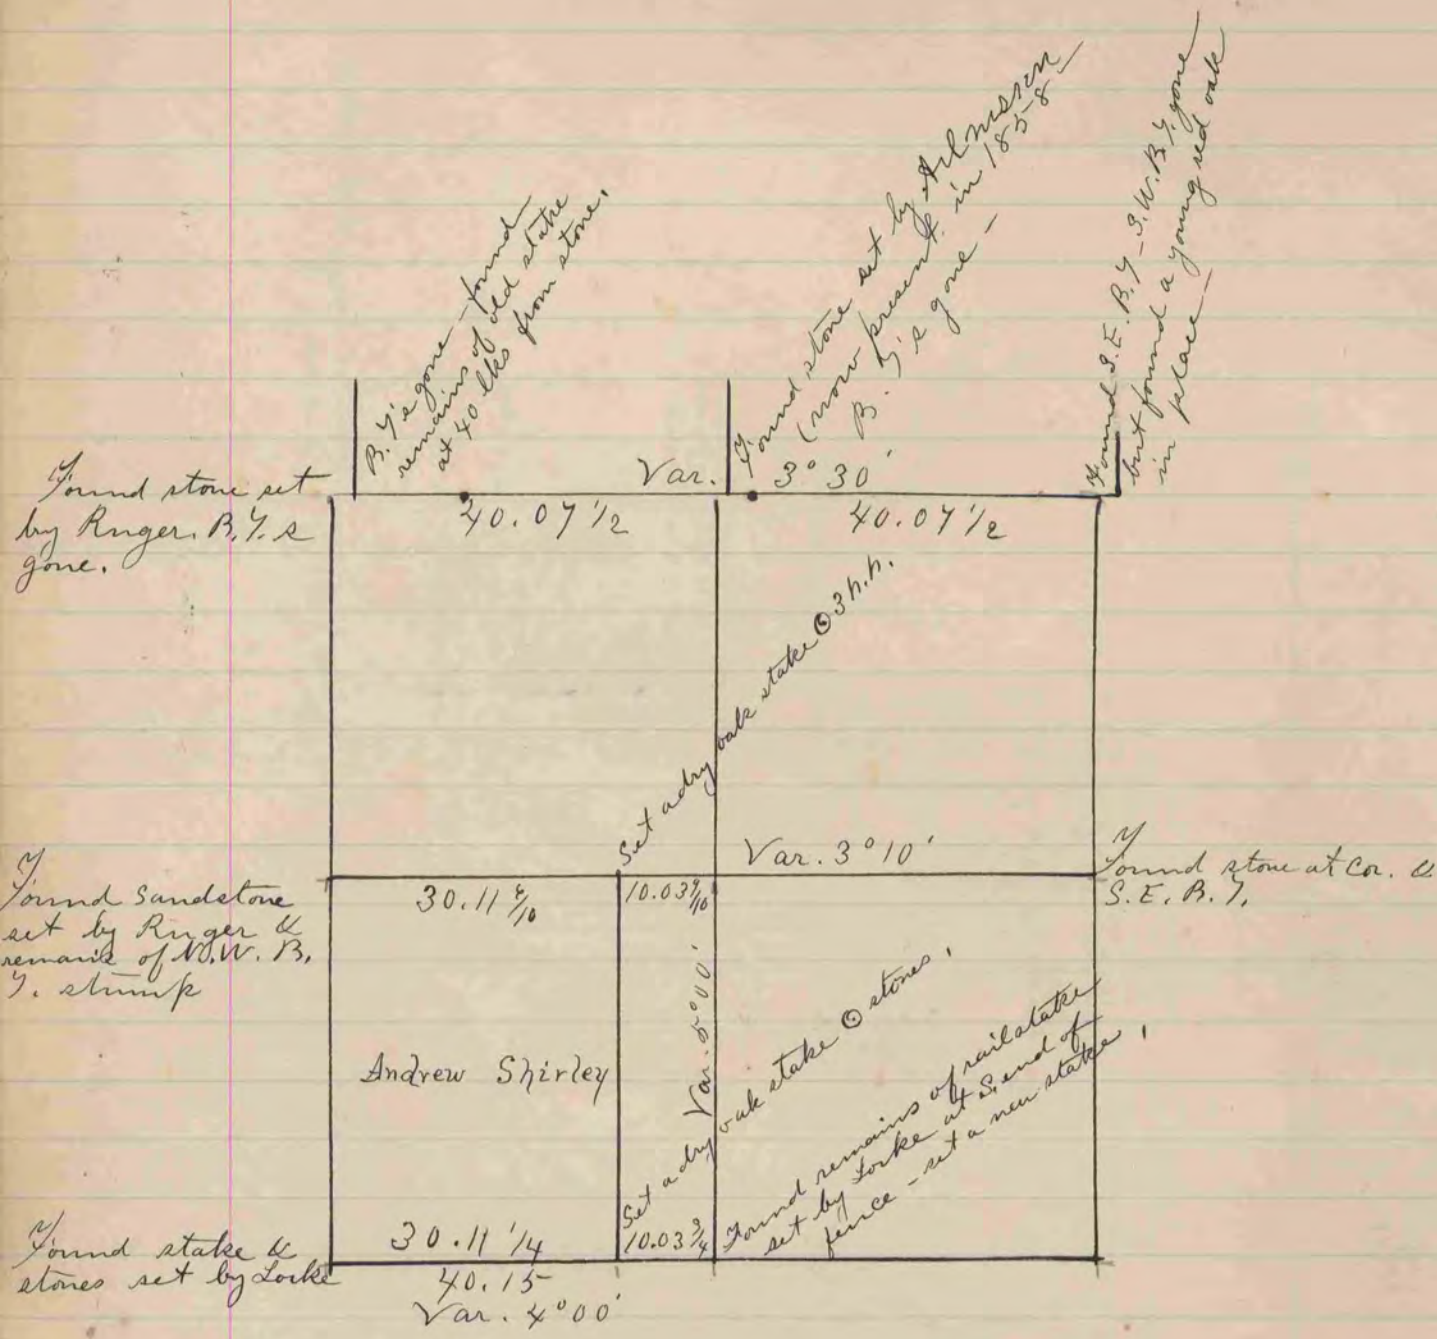 B.T.'s gone - found
remains of old stake
at 40 lks from stone.
Found stone set by
(now present in 1858
B.T.'s gone -
Found S.E. B.T. - S.W. B.T. gone
but found a young red oak
in place -
Found stone set
by Ruger. B.T.s
gone.
Var. 3° 30'
40.07 1/2
40.07 1/2
Set a dry oak stake ⊙ 3 h.h.
Var. 3° 10'
Found stone at Cor. &
S.E. B.T.
Found Sandstone
set by Ruger &
remains of N.W. B.
T. stump
30.11
10.03
Var. 5° 00'
Andrew Shirley
Set a dry oak stake ⊙ stones.
Found remains of rail stake
set by Locke at S. end of
fence - set a new stake.
Found stake &
stones set by Locke
30.11 1/4
10.03 3/4
40.15
Var. 4° 00'